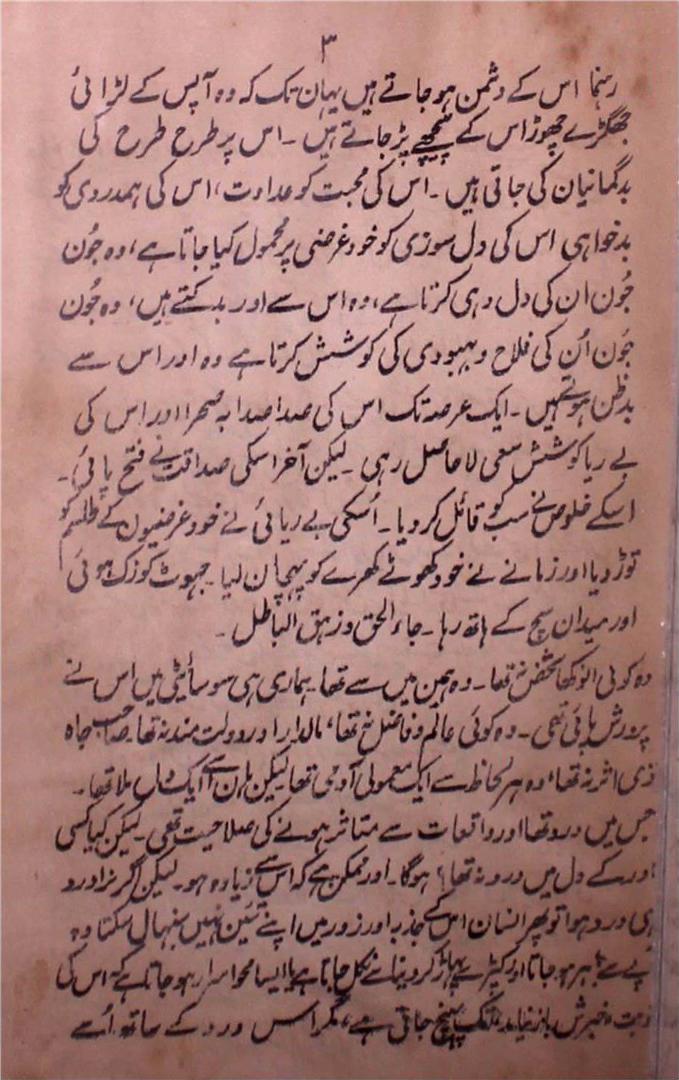 ۳
رہنما اس کے دشمن ہو جاتے ہیں یہان تک کہ وہ آپس کے لڑائی
جھگڑے چھوڑ اس کے پیچھے پڑ جاتے ہیں ۔ اس پر طرح طرح کی
بدگمانیان کی جاتی ہیں ۔ اس کی محبت کو عداوت، اس کی ہمدردی کو
بدخواہی اس کی دل سوزی کو خود غرضی پر محمول کیا جاتا ہے، وہ جُون
جُون ان کی دل دہی کرتا ہے، وہ اس سے اور بدکتے ہیں، وہ جُون
جُون اُن کی فلاح و بہبودی کی کوشش کرتا ہے وہ اور اس سے
بدظن ہوتے ہیں ۔ ایک عرصہ تک اس کی صدا صدا بہ صحرا اور اس کی
بے ریا کوشش سعی لا حاصل رہی ۔ لیکن آخر اسکی صداقت نے فتح پائی ۔
اسکے خلوص نے سب کو قائل کر دیا ۔ اُسکی بے ریائی نے خود غرضیون کے طلسم کو
توڑ دیا اور زمانے نے خود کھوٹے کھرے کو پہچان لیا ۔ جہوٹ کو زک ہوئی
اور میدان سچ کے ہاتھ رہا ۔ جاء الحق و زہق الباطل ۔
وہ کوئی انوکھا شخص نہ تھا ۔ وہ ہمین میں سے تھا ۔ ہماری ہی سوسائیٹی میں اس نے
پرورش پائی تھی ۔ وہ کوئی عالم و فاضل نہ تھا، مالدار اور دولت مند نہ تھا ۔ صاحب جاہ
ذی اثر نہ تھا، وہ ہر لحاظ سے ایک معمولی آدمی تھا لیکن ہان اسے ایک دل ملا تھا ۔
جس میں درد تھا اور واقعات سے متاثر ہونے کی صلاحیت تھی ۔ لیکن کیا کسی
اور کے دل میں درد نہ تھا؟ ہوگا ۔ اور ممکن ہے کہ اس سے زیادہ ہو ۔ لیکن اگر نرا درد
ہی درد ہوا تو پھر انسان اس کے جذبہ اور زور میں اپنے تئین نہیں سنبھال سکتا وہ
آپے سے باہر ہو جاتا اور کپڑے پھاڑ کر دیوانہ نکل جاتا ہے یا ایسا محو اسرار ہو جاتا ہے کہ اس کی
نوبت خبرش باز نیامد تک پہنچ جاتی ہے، مگر اس درد کے ساتھ اُسے